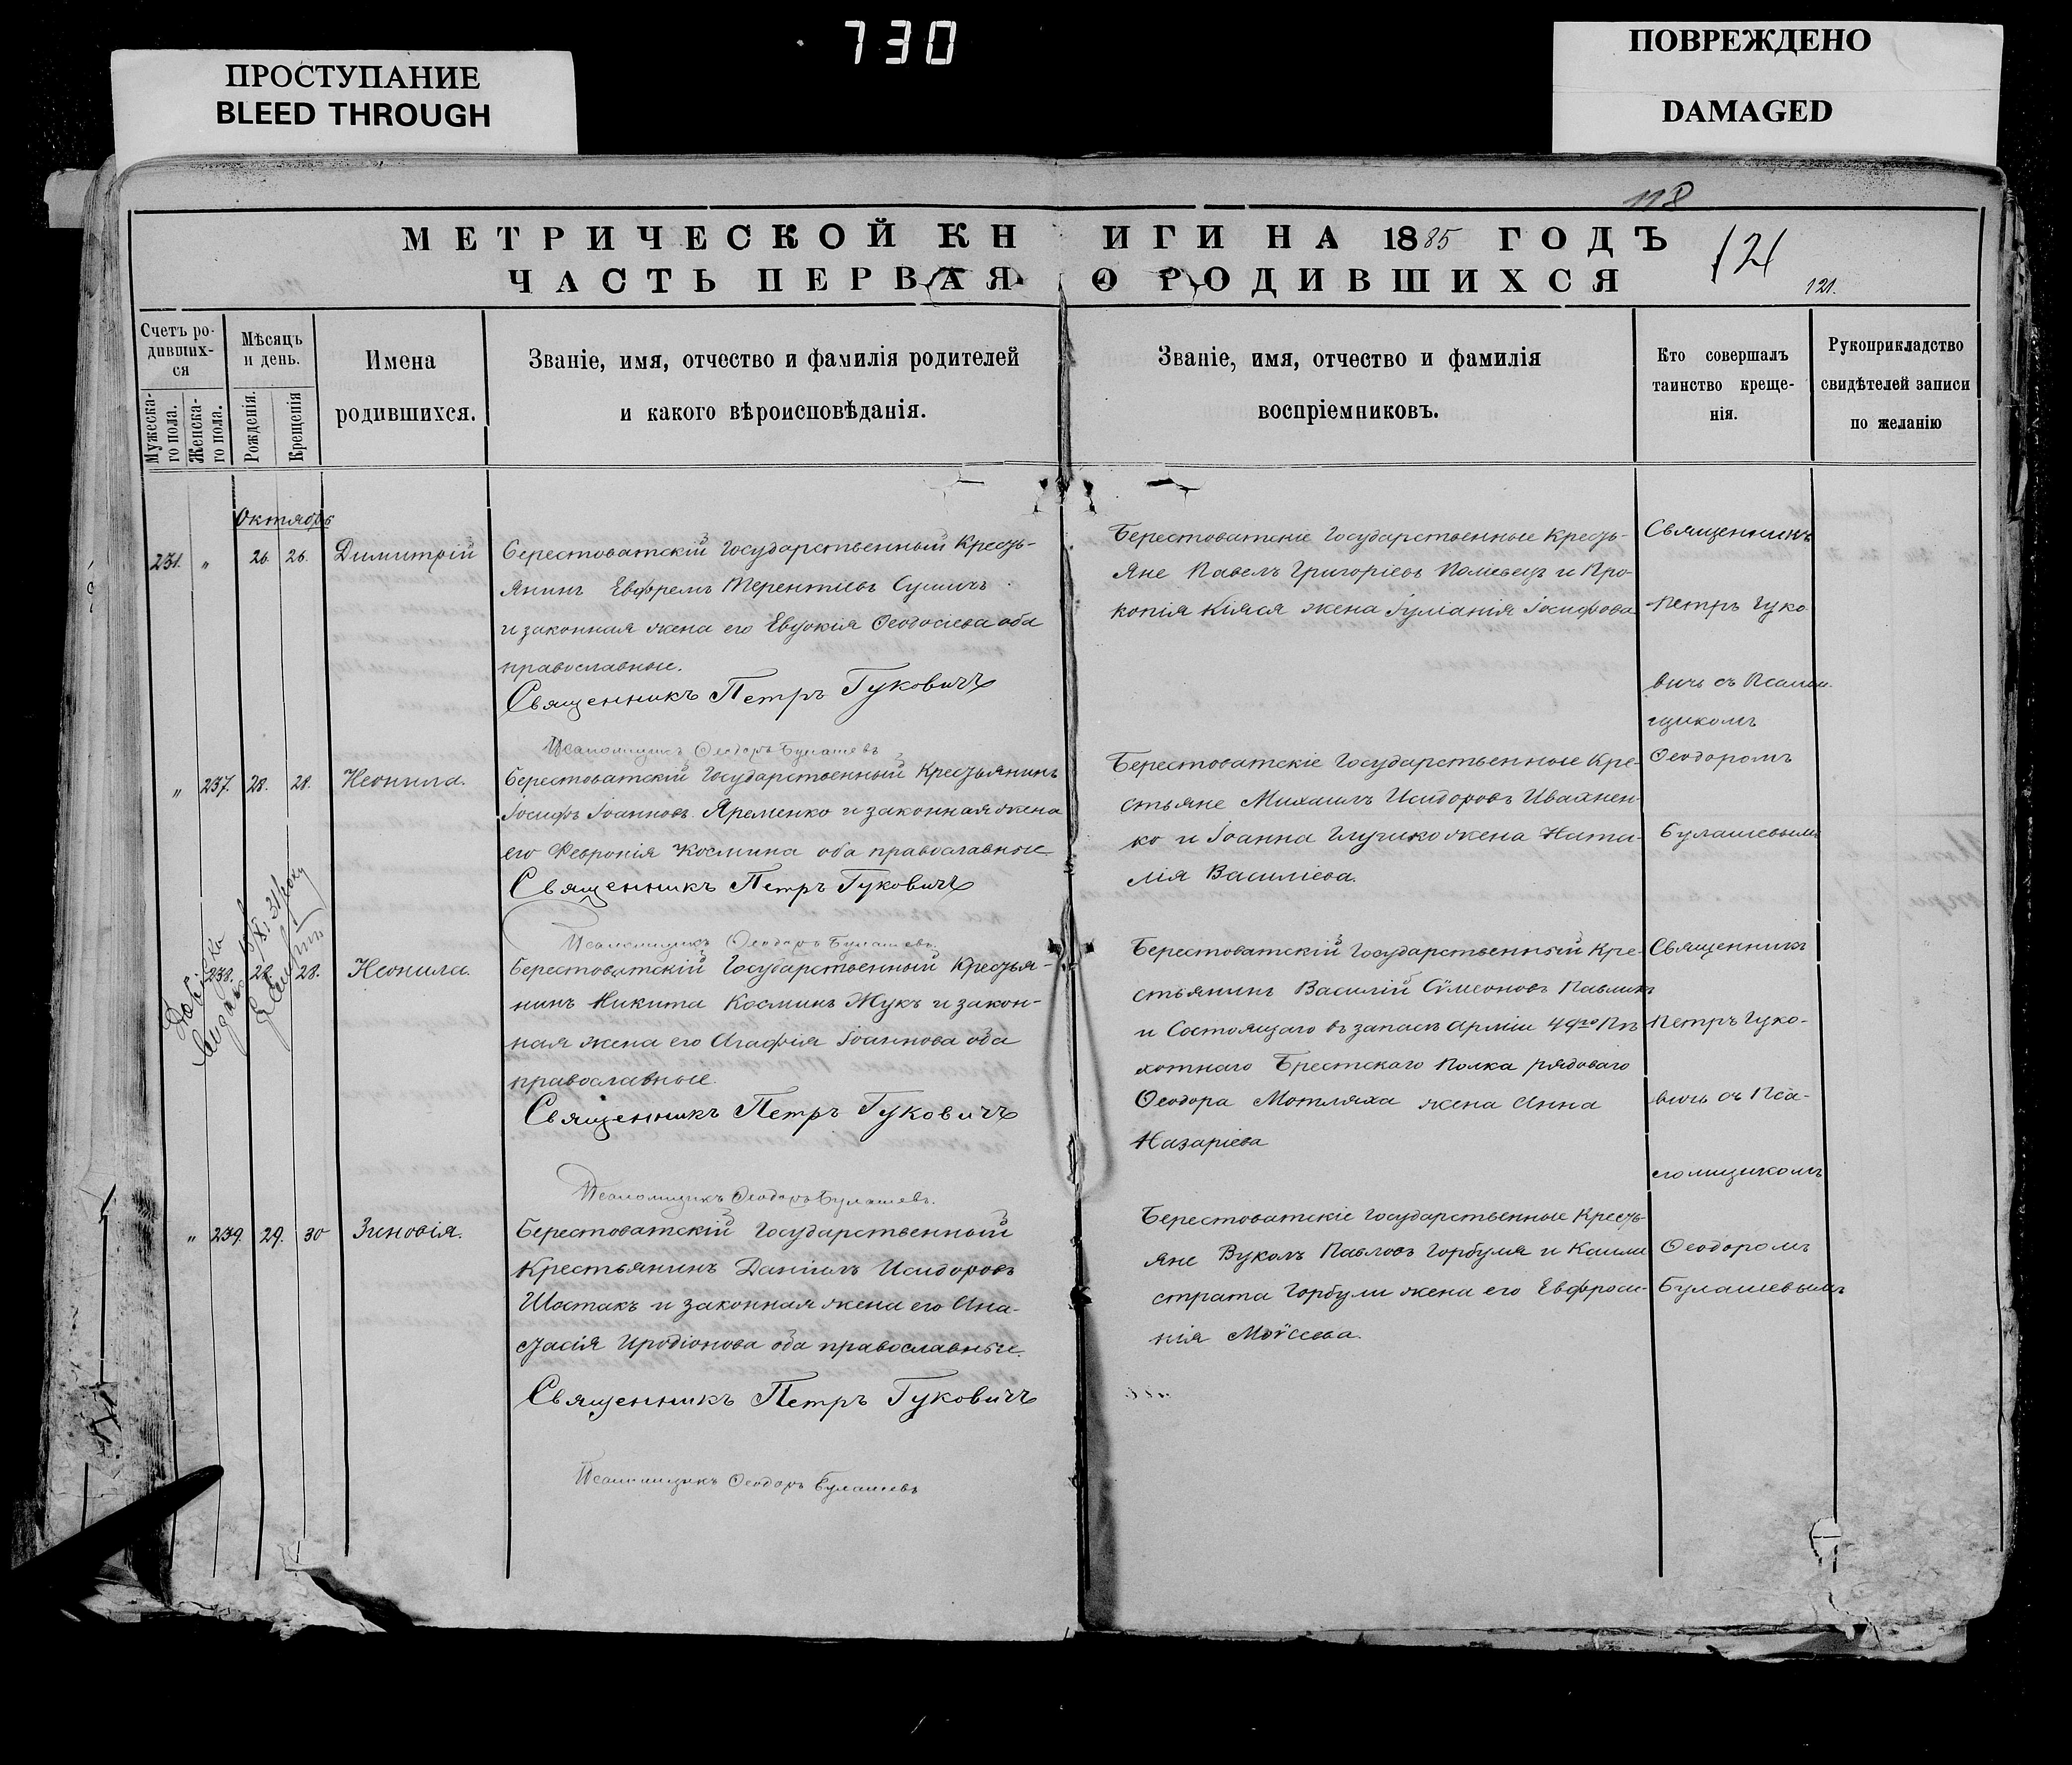 730
ПРОСТУПАНИЕ
BLEED THROUGH
ПОВРЕЖДЕНО
DAMAGED
118
МЕТРИЧЕСКОЙ КНИГИ НА 1885 ГОДЪ
121
ЧАСТЬ ПЕРВАЯ О РОДИВШИХСЯ
121.
Счетъ ро-
дивших-
ся
Мужеска-
го пола.
Женска-
го пола.
Мѣсяцъ
и день.
Рожденія.
Крещенія
Имена
родившихся.
Званіе, имя, отчество и фамилія родителей
и какого вѣроисповѣданія.
Званіе, имя, отчество и фамилія
воспріемниковъ.
Кто совершалъ
таинство креще-
нія.
Рукоприкладство
свидѣтелей записи
по желанію
Октябрь
231. " 26. 26. Димитрій
Берестоватскій Государственный Кресть-
янинъ Евфремъ Терентіевъ
и законная жена его Евдокія Ѳеодосіева оба
православные.
Священникъ Петръ Гуковичъ
Псаломщикъ Ѳеодоръ Булашевъ
Берестоватскіе Государственные Кресть-
яне Павелъ Григоріевъ и Про-
копія жена Іуліанія Іосифова
Священникъ
Петръ Гуко
вичъ съ Псалом-
щикомъ
Ѳеодоромъ
Булашевымъ
" 237. 28. 28. Неонила.
Берестоватскій Государственный Крестьянинъ
Іосифъ Іоанновъ Яременко и законная жена
его Февронія Космина оба православные
Священникъ Петръ Гуковичъ
Псаломщикъ Ѳеодоръ Булашевъ
Берестоватскіе Государственные Кре-
стьяне Михаилъ Исидоровъ Ивахнен-
ко и Іоанна жена Ната-
лія Василіева.
Довідка
видана 10/XI 31 року
" 238. 28. 28. Неонила.
Берестоватскій Государственный Крестья-
нинъ Никита Косминъ Жукъ и закон-
ная жена его Агафія Іоаннова оба
православные.
Священникъ Петръ Гуковичъ
Псаломщикъ Ѳеодоръ Булашевъ.
Берестоватскій Государственный Кре-
стьянинъ Василій Сѵмеоновъ Павликъ
и Состоящаго въ запасѣ Арміи 49го Пѣ
хотнаго Брестскаго Полка рядоваго
Ѳеодора Мотляха жена Анна
Назаріева
Священникъ
Петръ Гуко-
вичъ съ Пса-
ломщикомъ
Ѳеодоромъ
Булашевымъ
" 239. 29. 30 Зиновія.
Берестоватскій Государственный
Крестьянинъ Даніилъ Исидоровъ
Шостакъ и законная жена его Ана-
стасія Иродіонова оба православные.
Священникъ Петръ Гуковичъ
Псаломщикъ Ѳеодоръ Булашевъ
Берестоватскіе Государственные Кресть-
яне Вуколъ Павловъ Горбуля и Калли
страта Горбули жена его Евфроси-
нія Моѵсеева.